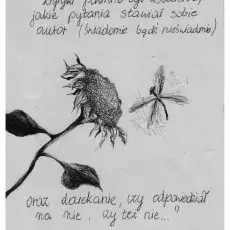 jakie pytania stawiał sobie
autor (świadomie bądź nieświadomie)
oraz dociekanie, czy odpowiedział
na nie, czy też nie..."